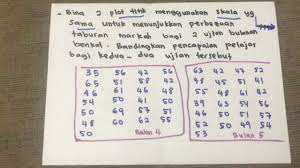 - Bina 2 plot titik menggunakan skala yg
sama untuk menunjukkan perbezaan
taburan markah bagi 2 ujian bulanan
berikut. Bandingkan pencapaian pelajar
bagi kedua-dua ujian tersebut
35 56 42 56
65 51 58 42
46 61 46 48
54 50 41 50
50 69 57 51
48 60 62 55
50 Bulan 4
63 42 47 52
48 45 51 41
55
47
52 50 49 54
53 Bulan 5